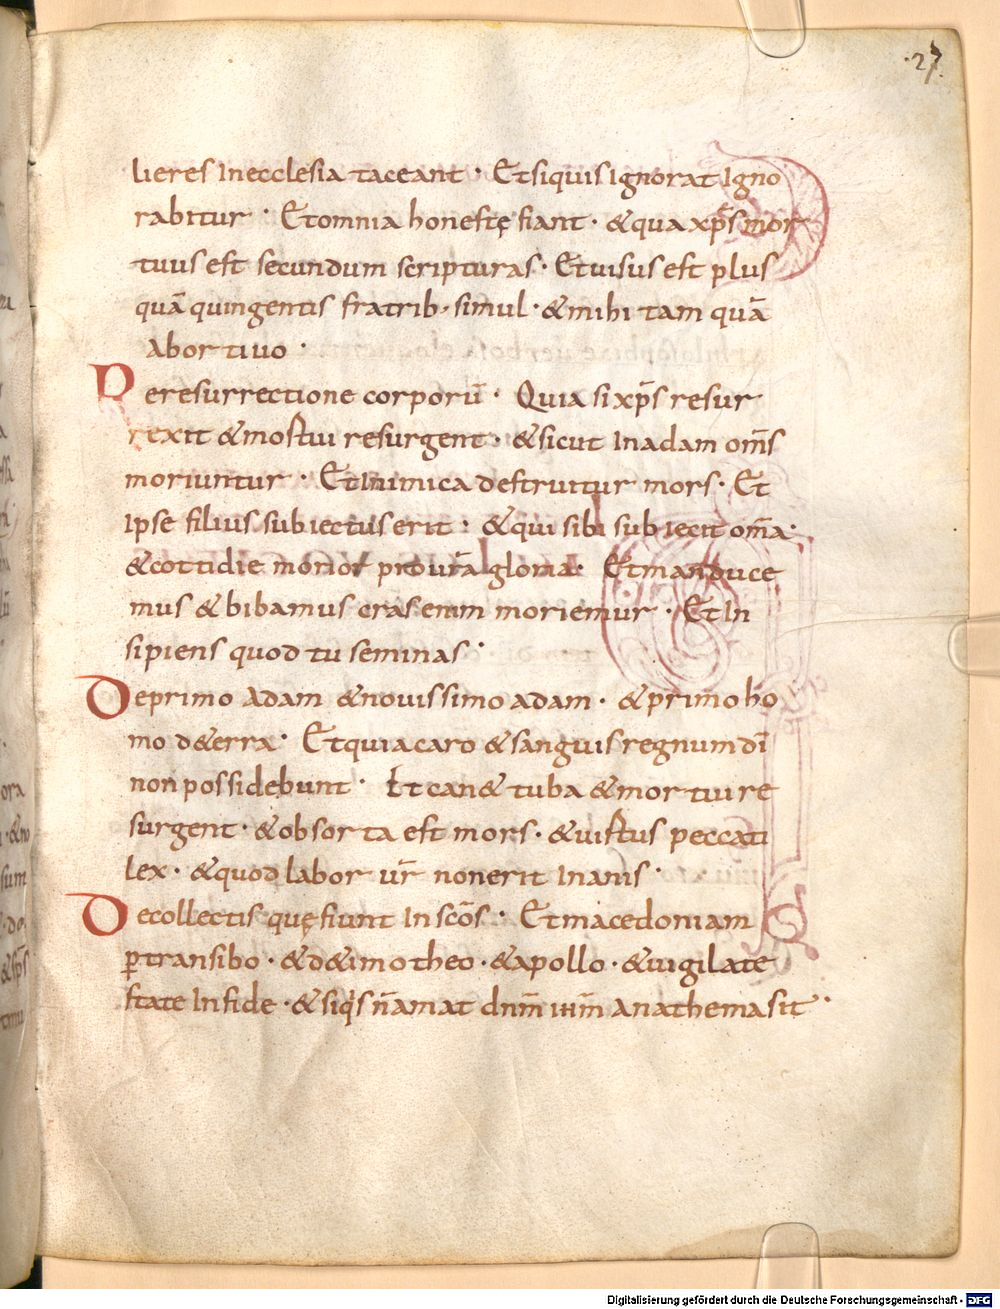 ·27·
lieres Inecclesia taceant · Etsiquis Ignorat Igno
rabitur · Etomnia honestę fiant · &qua xp̄s mor
tuus est secundum scripturas · Etuisus est plus
quā quingentis fratrib· simul · &mihi tam quā
Abortiuo ·
Deresurrectione corporū · Quia si xp̄s resur
rexit &mortui resurgent · &sicut Inadam om̄s
moriuntur · EtInimica destruitur mors · Et
Ipse filius subiectus erit · &qui sibi subiecit om̄a ·
&cottidie morior pro ur̄a gloria · Etmanduce
mus &bibamus cras enim moriemur · EtIn
sipiens quod tu seminas ·
Deprimo Adam &nouissimo adam · &primo ho
mo d&erra · Etquia caro &sanguis regnum dī
non possidebunt · Et can& tuba &mortui re
surgent · &obsorta est mors · &uictus peccati
lex · &quod labor ur̄ nonerit Inanis ·
Decollectis quę fiunt In scōs · Etmacedoniam
ꝑtransibo · &d&imotheo · &apollo · &uigilate
state Infide · &siq̇s n̄amat dnm̄ ihm̄ anathemasit ·
Digitalisierung gefördert durch die Deutsche Forschungsgemeinschaft - DFG